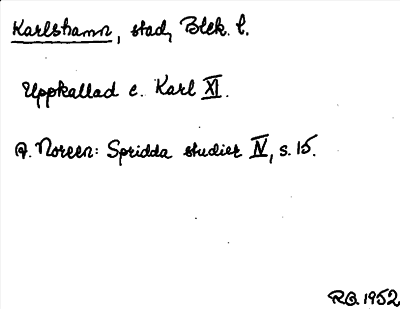 Karlshamn, stad, Blek. l.
Uppkallad e. Karl XI.
A. Noreen: Spridda studier IV, s. 15.
R.Q. 1952